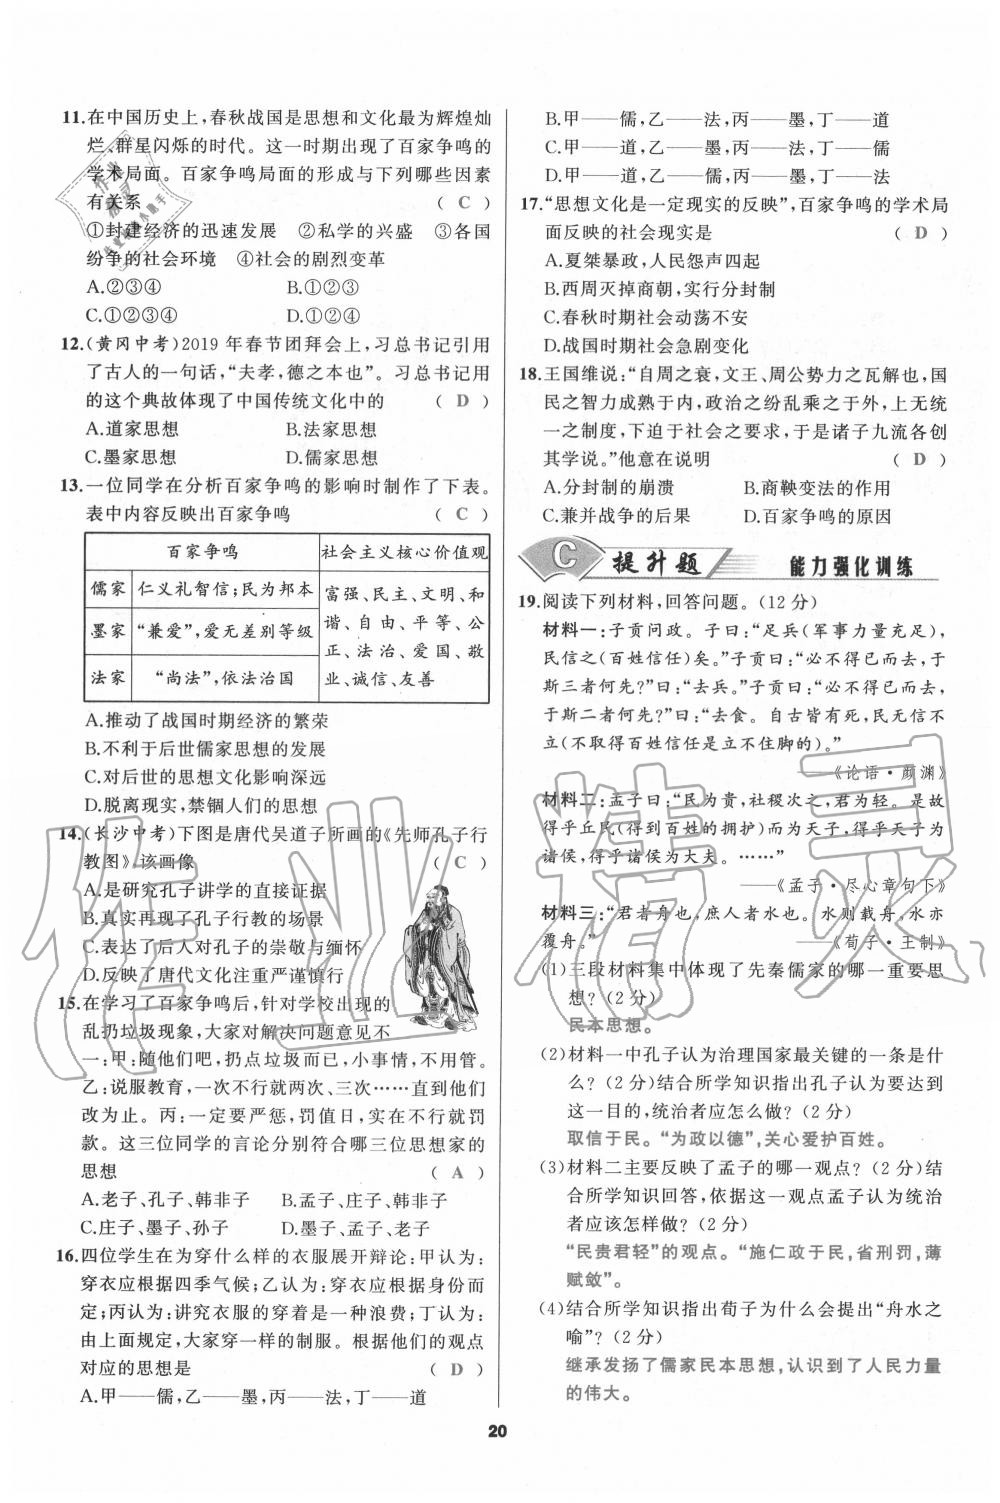 11.在中国历史上,春秋战国是思想和文化最为辉煌灿
烂、群星闪烁的时代。这一时期出现了百家争鸣的
学术局面。百家争鸣局面的形成与下列哪些因素
有关系 ( C )
①封建经济的迅速发展 ②私学的兴盛 ③各国
纷争的社会环境 ④社会的剧烈变革
A.②③④ B.①②③
C.①②③④ D.①③④
12.(黄冈中考)2019 年春节团拜会上,习总书记引用
了古人的一句话,“夫孝,德之本也”。习总书记用
的这个典故体现了中国传统文化中的 ( D )
A.道家思想 B.法家思想
C.墨家思想 D.儒家思想
13.一位同学在分析百家争鸣的影响时制作了下表。
表中内容反映出百家争鸣 ( C )
百家争鸣 社会主义核心价值观
儒家 仁义礼智信;民为邦本 富强、民主、文明、和
墨家 “兼爱”,爱无差别等级 谐、自由、平等、公
正、法治、爱国、敬
法家 “尚法”,依法治国 业、诚信、友善
A.推动了战国时期经济的繁荣
B.不利于后世儒家思想的发展
C.对后世的思想文化影响深远
D.脱离现实,禁锢人们的思想
14.(长沙中考)下图是唐代吴道子所画的《先师孔子行
教图》,该画像 ( C )
A.是研究孔子讲学的直接证据
B.真实再现了孔子行教的场景
C.表达了后人对孔子的崇敬与缅怀
D.反映了唐代文化注重严谨慎行
15.在学习了百家争鸣后,针对学校出现的
乱扔垃圾现象,大家对解决问题意见不
一:甲:随他们吧,扔点垃圾而已,小事情,不用管。
乙:说服教育,一次不行就两次、三次……直到他们
改为止。丙:一定要严惩,罚值日,实在不行就罚
款。这三位同学的言论分别符合哪三位思想家的
思想 ( A )
A.老子、孔子、韩非子 B.孟子、庄子、韩非子
C.庄子、墨子、孙子 D.墨子、孟子、老子
16.四位学生在为穿什么样的衣服展开辩论:甲认为:
穿衣应根据四季气候;乙认为:穿衣应根据身份而
定;丙认为:讲究衣服的穿着是一种浪费;丁认为:
由上面规定,大家穿一样的制服。根据他们的观点
对应的思想是 ( D )
A.甲——儒,乙——墨,丙——法,丁——道
B.甲——儒,乙——法,丙——墨,丁——道
C.甲——道,乙——墨,丙——法,丁——儒
D.甲——道,乙——儒,丙——墨,丁——法
17.“思想文化是一定现实的反映”,百家争鸣的学术局
面反映的社会现实是 ( D )
A.夏桀暴政,人民怨声四起
B.西周灭掉商朝,实行分封制
C.春秋时期社会动荡不安
D.战国时期社会急剧变化
18.王国维说:“自周之衰,文王、周公势力之瓦解也,国
民之智力成熟于内,政治之纷乱乘之于外,上无统
一之制度,下迫于社会之要求,于是诸子九流各创
其学说。”他意在说明 ( D )
A.分封制的崩溃 B.商鞅变法的作用
C.兼并战争的后果 D.百家争鸣的原因
C 提升题 能力强化训练
19.阅读下列材料,回答问题。(12 分)
材料一:子贡问政。子曰:“足兵(军事力量充足),
民信之(百姓信任)矣。”子贡曰:“必不得已而去,于
斯三者何先?”曰:“去兵。”子贡曰:“必不得已而去,
于斯二者何先?”曰:“去食。自古皆有死,民无信不
立(不取得百姓信任是立不住脚的)。”
——《论语·颜渊》
材料二:孟子曰:“民为贵,社稷次之,君为轻。是故
得乎丘民(得到百姓的拥护)而为天子,得乎天子为
诸侯,得乎诸侯为大夫。……”
——《孟子·尽心章句下》
材料三:“君者舟也,庶人者水也。水则载舟,水亦
覆舟。” ——《荀子·王制》
(1)三段材料集中体现了先秦儒家的哪一重要思
想?(2分)
民本思想。
(2)材料一中孔子认为治理国家最关键的一条是什
么?(2分)结合所学知识指出孔子认为要达到
这一目的,统治者应怎么做?(2分)
取信于民。“为政以德”,关心爱护百姓。
(3)材料二主要反映了孟子的哪一观点?(2分)结
合所学知识回答,依据这一观点孟子认为统治
者应该怎样做?(2分)
“民贵君轻”的观点。“施仁政于民,省刑罚,薄
赋敛”。
(4)结合所学知识指出荀子为什么会提出“舟水之
喻”?(2分)
继承发扬了儒家民本思想,认识到了人民力量
的伟大。
20
作业精灵